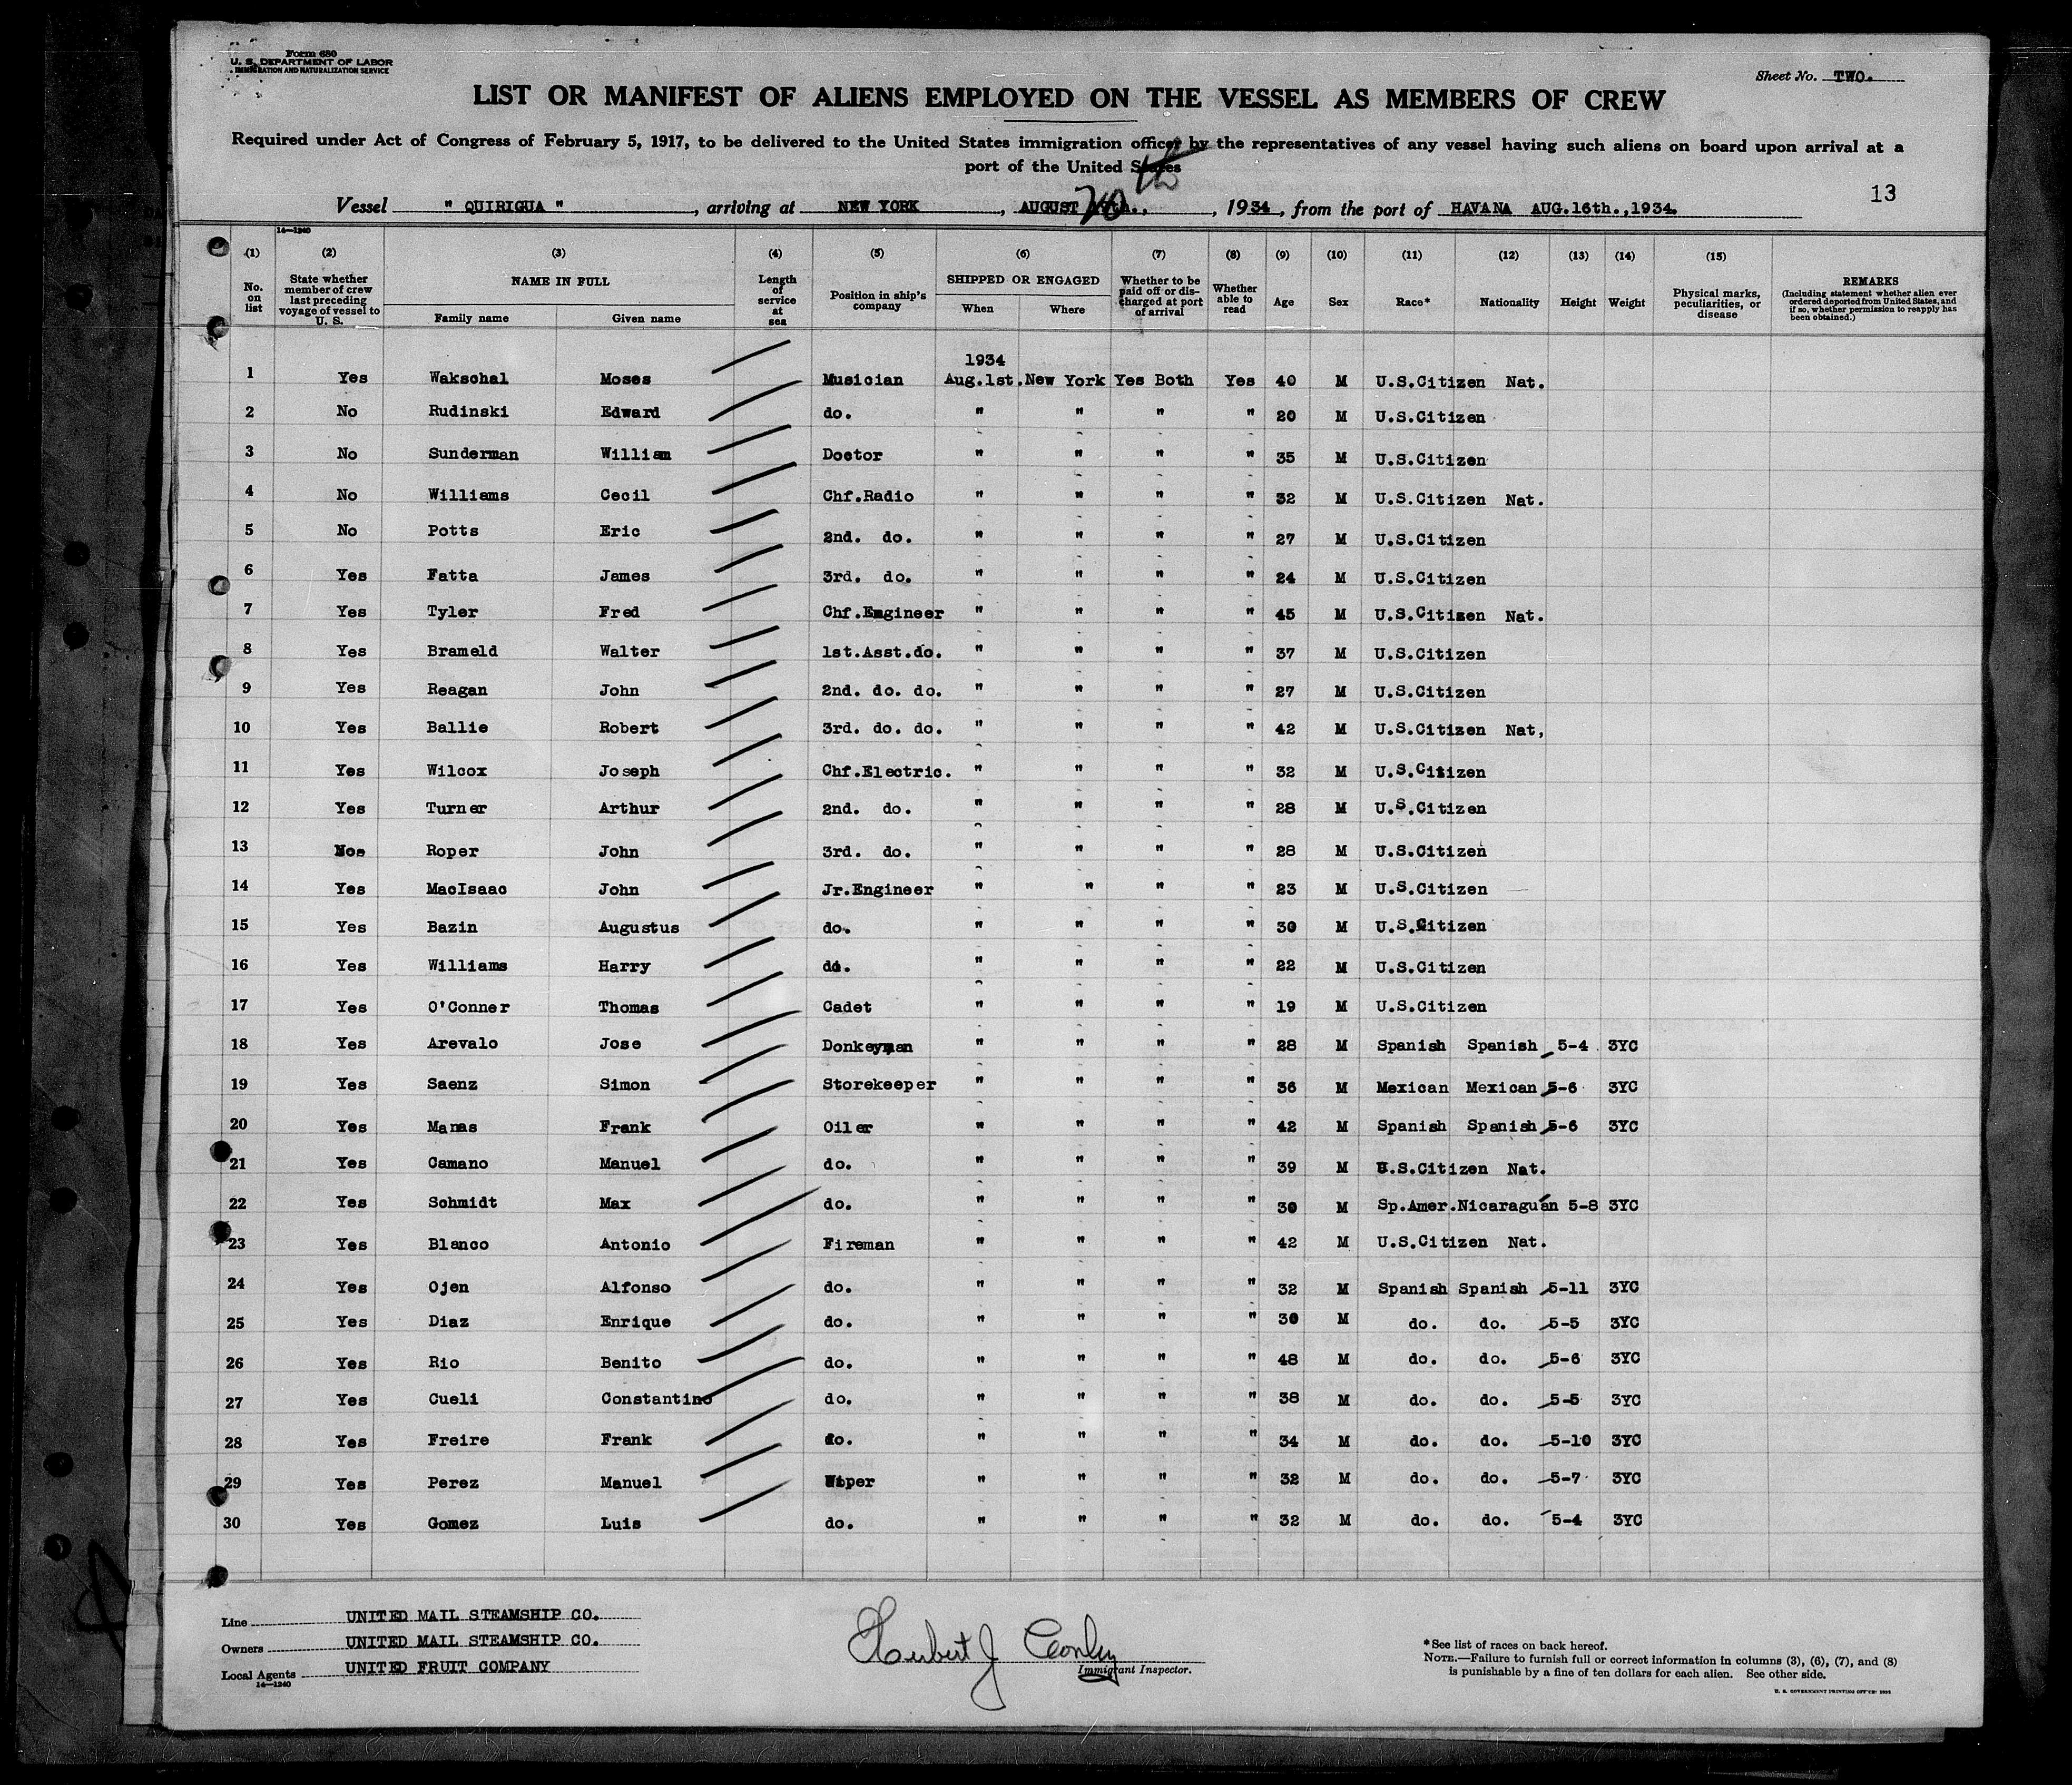 Form 680
U. S. DEPARTMENT OF LABOR
IMMIGRATION AND NATURALIZATION SERVICE
Sheet No. TWO.
LIST OR MANIFEST OF ALIENS EMPLOYED ON THE VESSEL AS MEMBERS OF CREW
Required under Act of Congress of February 5, 1917, to be delivered to the United States immigration officer by the representatives of any vessel having such aliens on board upon arrival at a
port of the United States
13
Vessel " QUIRIGUA ", arriving at NEW YORK, AUGUST 20th., 1934, from the port of HAVANA AUG.16th.,1934.
14—1240
(1) (2) (3) (4) (5) (6) (7) (8) (9) (10) (11) (12) (13) (14) (15)
No. on list State whether member of crew last preceding voyage of vessel to U. S. NAME IN FULL Family name Given name Length of service at sea Position in ship's company SHIPPED OR ENGAGED When Where Whether to be paid off or discharged at port of arrival Whether able to read Age Sex Race* Nationality Height Weight Physical marks, peculiarities, or disease REMARKS (Including statement whether alien ever ordered deported from United States, and if so, whether permission to reapply has been obtained.)
1934
1 Yes Wakschal Moses Musician Aug.1st. New York Yes Both Yes 40 M U.S.Citizen Nat.
2 No Rudinski Edward do. " " " " 20 M U.S.Citizen
3 No Sunderman William Doctor " " " " 35 M U.S.Citizen
4 No Williams Cecil Chf.Radio " " " " 32 M U.S.Citizen Nat.
5 No Potts Eric 2nd. do. " " " " 27 M U.S.Citizen
6 Yes Fatta James 3rd. do. " " " " 24 M U.S.Citizen
7 Yes Tyler Fred Chf.Engineer " " " " 45 M U.S.Citizen Nat.
8 Yes Brameld Walter 1st.Asst.do. " " " " 37 M U.S.Citizen
9 Yes Reagan John 2nd. do. do. " " " " 27 M U.S.Citizen
10 Yes Ballie Robert 3rd. do. do. " " " " 42 M U.S.Citizen Nat,
11 Yes Wilcox Joseph Chf.Electric. " " " " 32 M U.S.Citizen
12 Yes Turner Arthur 2nd. do. " " " " 28 M U.S.Citizen
13 Roper John 3rd. do. " " " " 28 M U.S.Citizen
14 Yes MacIsaac John Jr.Engineer " " " " 23 M U.S.Citizen
15 Yes Bazin Augustus do. " " " " 30 M U.S.Citizen
16 Yes Williams Harry do. " " " " 22 M U.S.Citizen
17 Yes O'Conner Thomas Cadet " " " " 19 M U.S.Citizen
18 Yes Arevalo Jose Donkeyman " " " " 28 M Spanish Spanish 5-4 3YC
19 Yes Saenz Simon Storekeeper " " " " 36 M Mexican Mexican 5-6 3YC
20 Yes Manas Frank Oiler " " " " 42 M Spanish Spanish 5-6 3YC
21 Yes Camano Manuel do. " " " " 39 M U.S.Citizen Nat.
22 Yes Schmidt Max do. " " " " 30 M Sp.Amer.Nicaraguan 5-8 3YC
23 Yes Blanco Antonio Fireman " " " " 42 M U.S.Citizen Nat.
24 Yes Ojen Alfonso do. " " " " 32 M Spanish Spanish 5-11 3YC
25 Yes Diaz Enrique do. " " " " 30 M do. do. 5-5 3YC
26 Yes Rio Benito do. " " " " 48 M do. do. 5-6 3YC
27 Yes Cueli Constantino do. " " " " 38 M do. do. 5-5 3YC
28 Yes Freire Frank do. " " " " 34 M do. do. 5-10 3YC
29 Yes Perez Manuel Wiper " " " " 32 M do. do. 5-7 3YC
30 Yes Gomez Luis do. " " " " 32 M do. do. 5-4 3YC
Line UNITED MAIL STEAMSHIP CO.
Owners UNITED MAIL STEAMSHIP CO.
Local Agents UNITED FRUIT COMPANY
14—1240
Herbert J Conley
Immigrant Inspector.
*See list of races on back hereof.
NOTE.—Failure to furnish full or correct information in columns (3), (6), (7), and (8)
is punishable by a fine of ten dollars for each alien. See other side.
U. S. GOVERNMENT PRINTING OFFICE: 1931